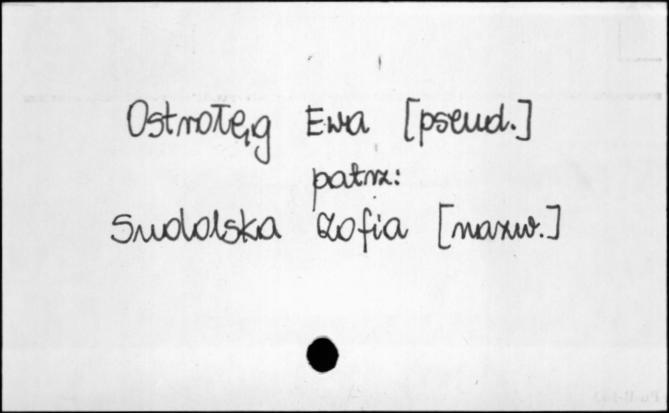 Ostrołęg Ewa [pseud.]
patrz:
Sudolska Zofia [nazw.]